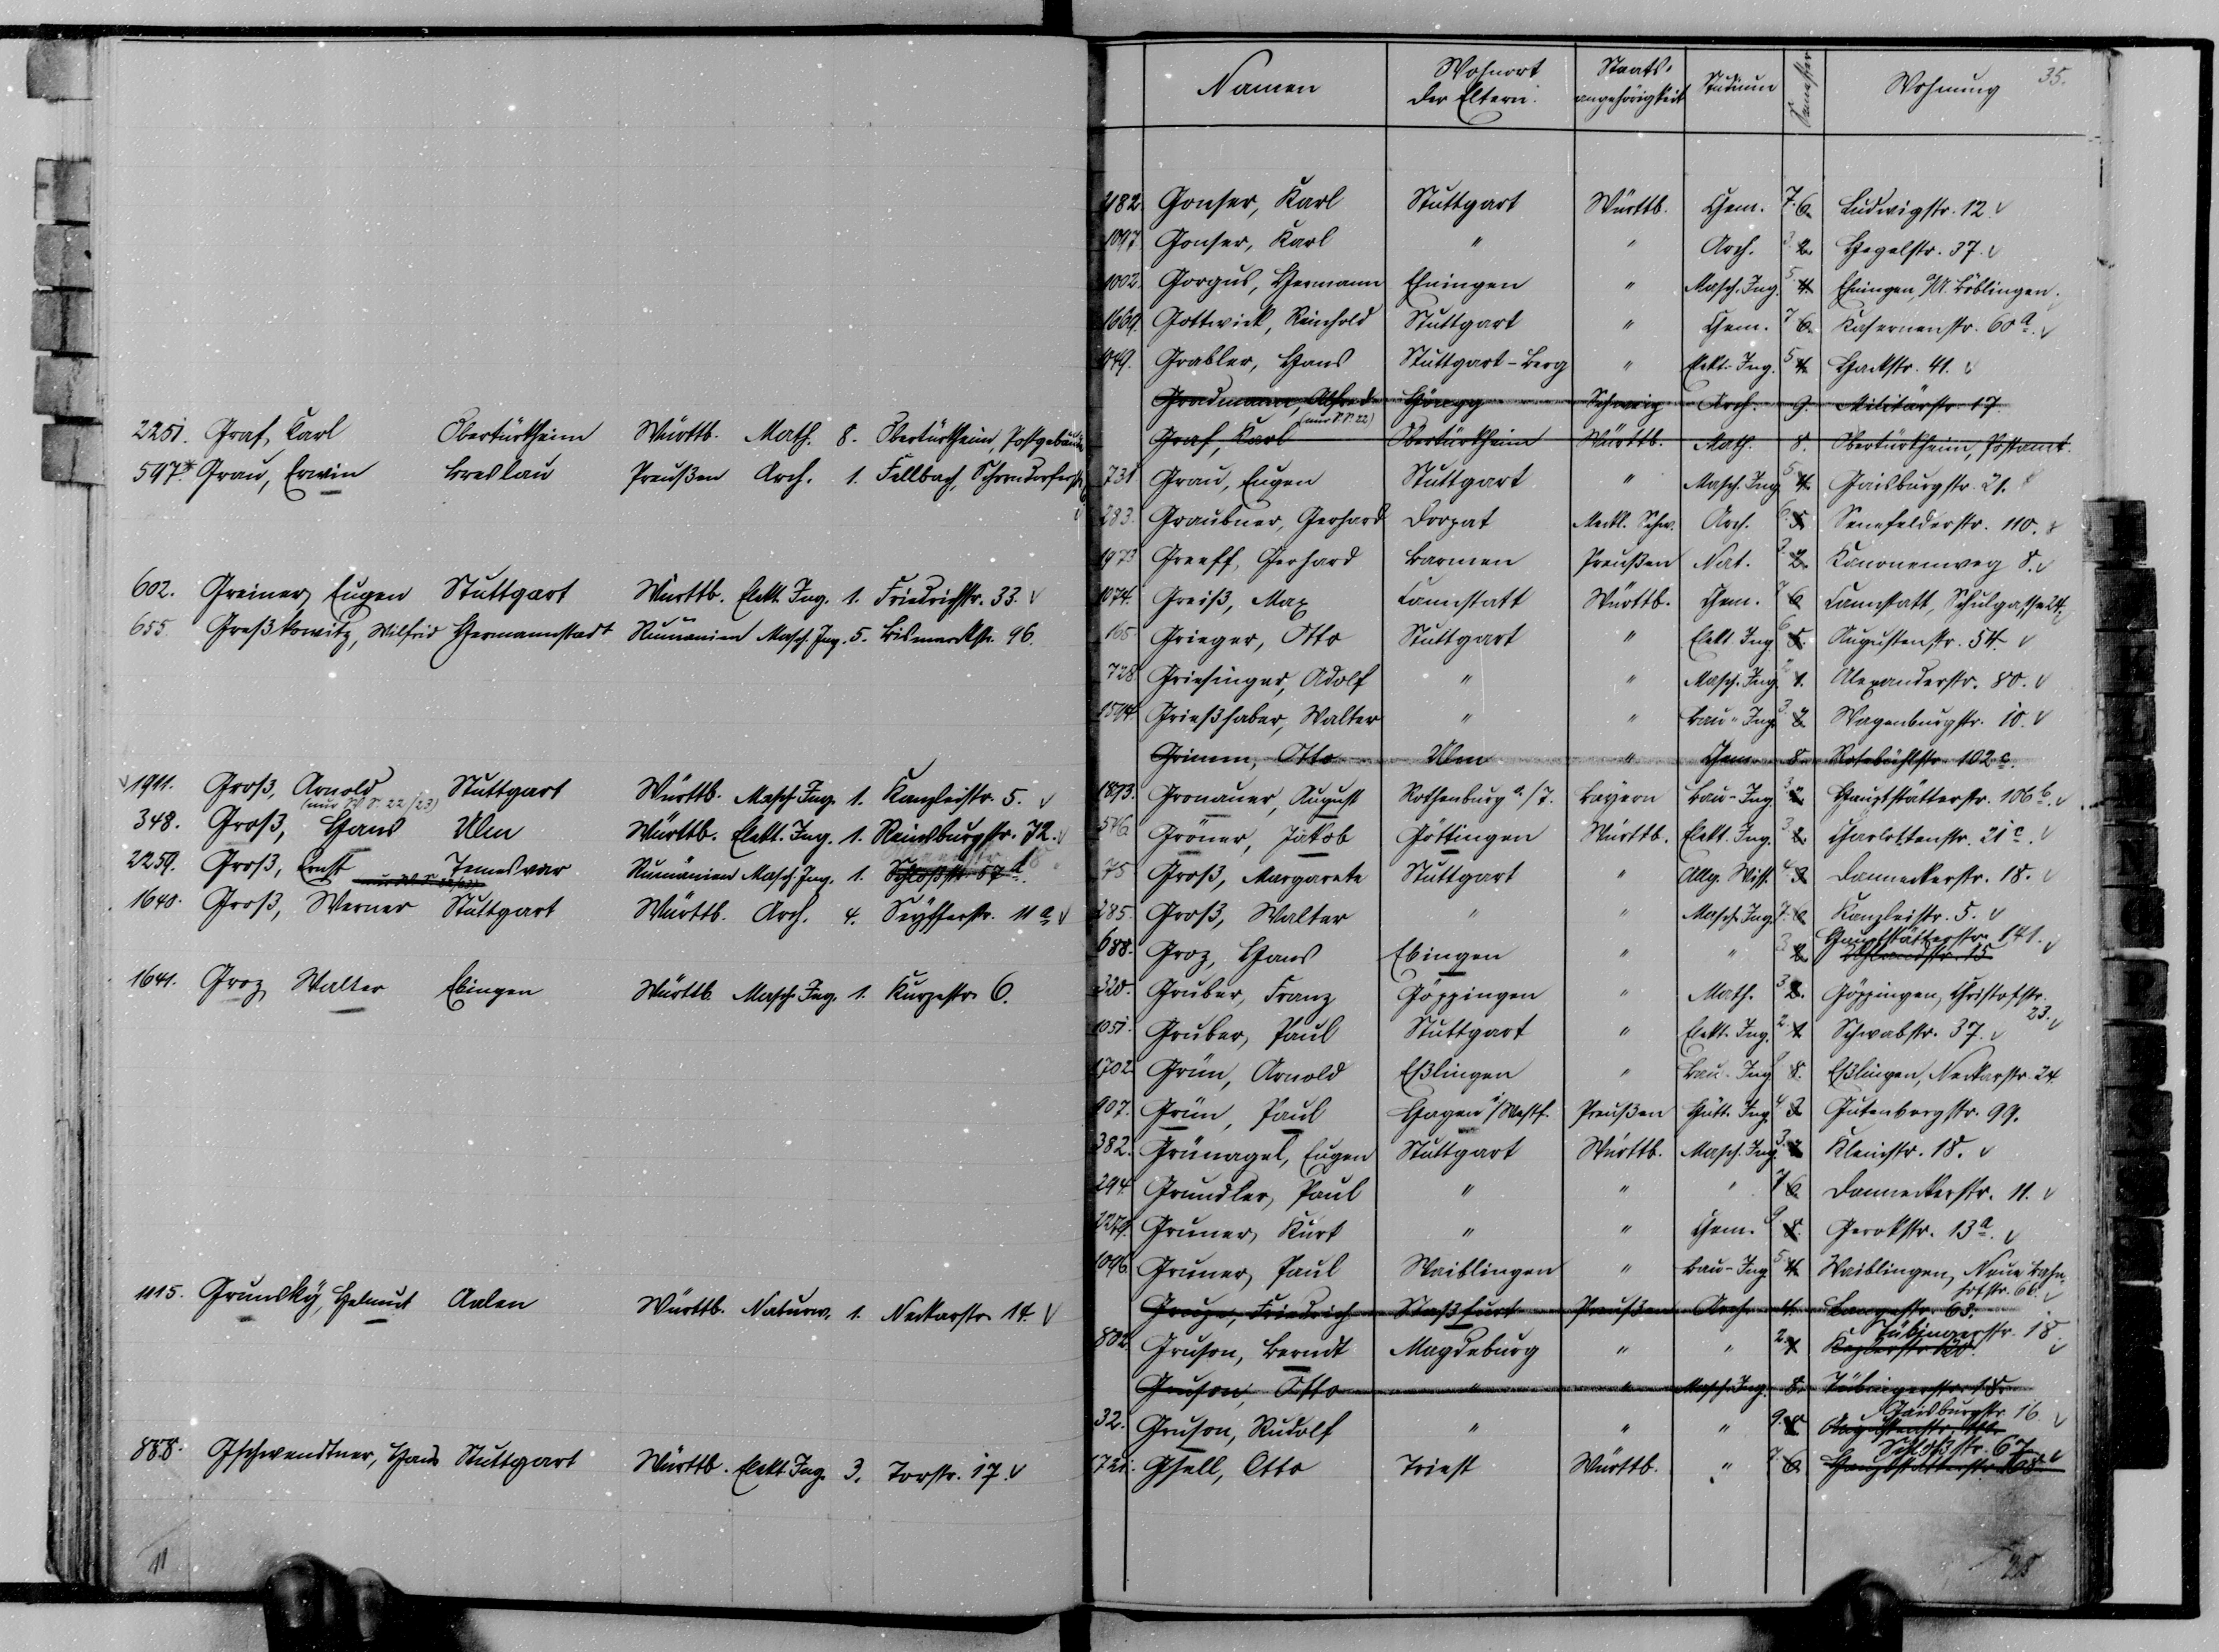 2251. Graf, Karl Obertürkheim Württb. Math. 8. Obertürkheim, Postgebäude
597.* Grau, Erwin Breslau Preußen Arch. 1. Fellbach, Schorndorferstr.
602. Greiner, Eugen Stuttgart Württb. Elekt. Ing. 1. Friedrichstr. 33. v
655 Greßkowitz, Wilfrid Hermannstadt Rumänien Masch. Ing. 5. Bismarckstr. 96.
v 1911. Groß, Arnold Stuttgart Württb. Masch. Ing. 1. Kanzleistr. 5. v
(nur W.S. 22/23)
348. Groß, Hans Ulm Württb. Elekt. Ing. 1. Reinsburgstr. 72. v
2259. Groß, Ernst Temesvar Rumänien Masch. Ing. 1. Schloßstr. 57a.
1640. Groß, Werner Stuttgart Württb. Arch. 4. Seyfferstr. 11a v
1641. Groz, Walter Ebingen Württb. Masch. Ing. 1. Kurzestr. 6.
1115. Grunsky, Helmut Aalen Württb. Naturw. 1. Neckarstr. 14. v
888. Gschwendtner, Hans Stuttgart Württb. Elekt. Ing. 3. Torstr. 17. v
11
35.
Namen Wohnort der Eltern. Staats-angehörigkeit Studium Semester Wohnung
Gonser, Karl Stuttgart Württb. Chem. 7. 6. Ludwigstr. 12. v
1097 Gonser, Karl " " Arch. 3. 2. Hegelstr. 37. v
1002. Gorgus, Hermann Ehningen " Masch. Ing. 5. 4. Ehningen, O/A. Böblingen.
1669. Gottwick, Reinhold Stuttgart " Chem. 7 6. Kasernenstr. 60a. v
Grabler, Hans Stuttgart-Berg " Elekt. Ing. 5. 4. Hackstr. 41. v
Gradmann, Alfred Höngg Schweiz Arch. 9. Militärstr. 17
(nur S.S. 22)
Graf, Karl Obertürkheim Württb. Math. 8. Obertürkheim, Postamt.
731 Grau, Eugen Stuttgart " Masch. Ing. 5. 4. Gaisburgstr. 21.
283. Graubner, Gerhard Dorpat Meckl. Schw. Arch. 6. 5. Senefelderstr. 110. v
1973 Greeff, Gerhard Barmen Preußen Nat. 3. 2. Kanonenweg 8. v
1074. Greiß, Max Cannstatt Württb. Chem. 7 6 Cannstatt, Schulgasse 24.
165 Grieger, Otto Stuttgart " Elekt. Ing. 6. 5. Augustenstr. 54. v
728 Griesinger, Adolf " " Masch. Ing. 2. 1. Alexanderstr. 80. v
1594 Grießhaber, Walter " " Bau-Ing. 3. 2. Wagenburgstr. 10. v
Grimm, Otto Ulm " Chem. 8. Rotebühlstr. 102c.
1893. Gronauer, August Rothenburg a./T. Bayern Bau-Ing. 3. 2. Hauptstätterstr. 106b. v
576 Gröner, Jakob Göttingen Württb. Elekt. Ing. 3. 2. Charlottenstr. 21c. v
75 Groß, Margarete Stuttgart " Allg. Wiss. 4. 3. Danneckerstr. 18. v
285. Groß, Walter " " Masch. Ing. 7. 6. Kanzleistr. 5. v
688. Groz, Hans Ebingen " " 3. 2. Hauptstätterstr. 141. v
Uhlandstr. 15
320. Gruber, Franz Göppingen " Math. 3. 2. Göppingen, Christofstr. 23. v
1051. Gruber, Paul Stuttgart " Elekt. Ing. 2. 1. Schwabstr. 37. v
1702 Grün, Arnold Eßlingen " Bau-Ing. 8. Eßlingen, Neckarstr. 24.
907. Grün, Paul Hagen i/Westf. Preußen Hütt. Ing. 4. 3. Gutenbergstr. 99.
382. Grünagel, Eugen Stuttgart Württb. Masch. Ing. 3. 2. Kleinstr. 18. v
294. Grundler, Paul " " " 7 6. Danneckerstr. 11. v
Gruner, Kurt " " Chem. 9. 8. Gerokstr. 13a. v
1096 Gruner, Paul Waiblingen " Bau-Ing. 5. 4. Waiblingen, Neue Bahnhofstr. 66. v
Gruze, Friedrich Staßfurt Preußen Arch. 4. Langestr. 63.
802. Gruson, Berndt Magdeburg " " 2. 1 Tübingerstr. 18. v
Gruson, Otto " " Masch. Ing. 8. Tübingerstr. 18.
32. Gruson, Rudolf " " " 9. 8. Gaisburgstr. 16. v
Gsell, Otto Triest Württb. " 7. 6. Schloßstr. 67. v
Hauptstätterstr.
28